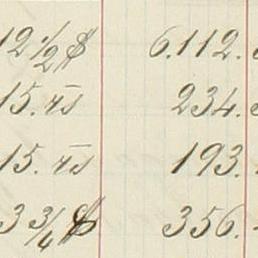 12 1/2 $ 6.112.
15. rs 234.
15. rs 193.
3 3/4 $ 356.